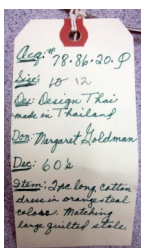 Acq.# 78.86.20.P
Size: 10 12
Des: Design Thai
made in Thailand
Don: Margaret Goldman
Dec: 60's
Item: 2pc long cotton
dress in orange teal
colors. Matching
large quilted stole